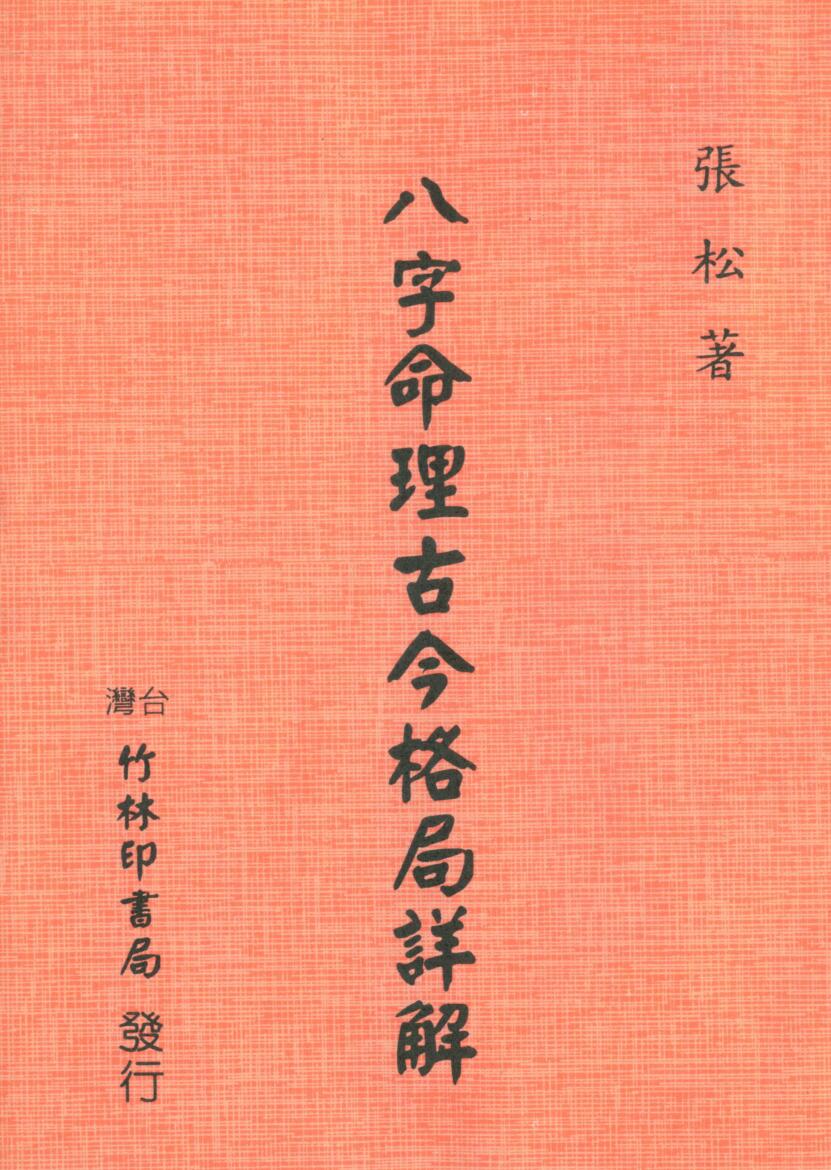 張松著
八字命理古今格局詳解
台灣
竹林印書局 發行